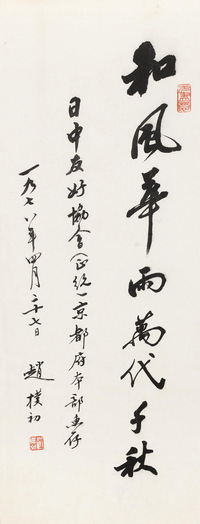 和風華雨萬代千秋
日中友好協会(正統)京都府本部惠存
一九七八年四月二十七日
趙樸初